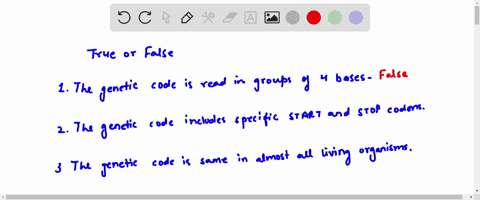 True or False
1. The genetic code is read in groups of 4 bases - False
2. The genetic code includes specific START and STOP codons.
3 The genetic code is same in almost all living organisms.